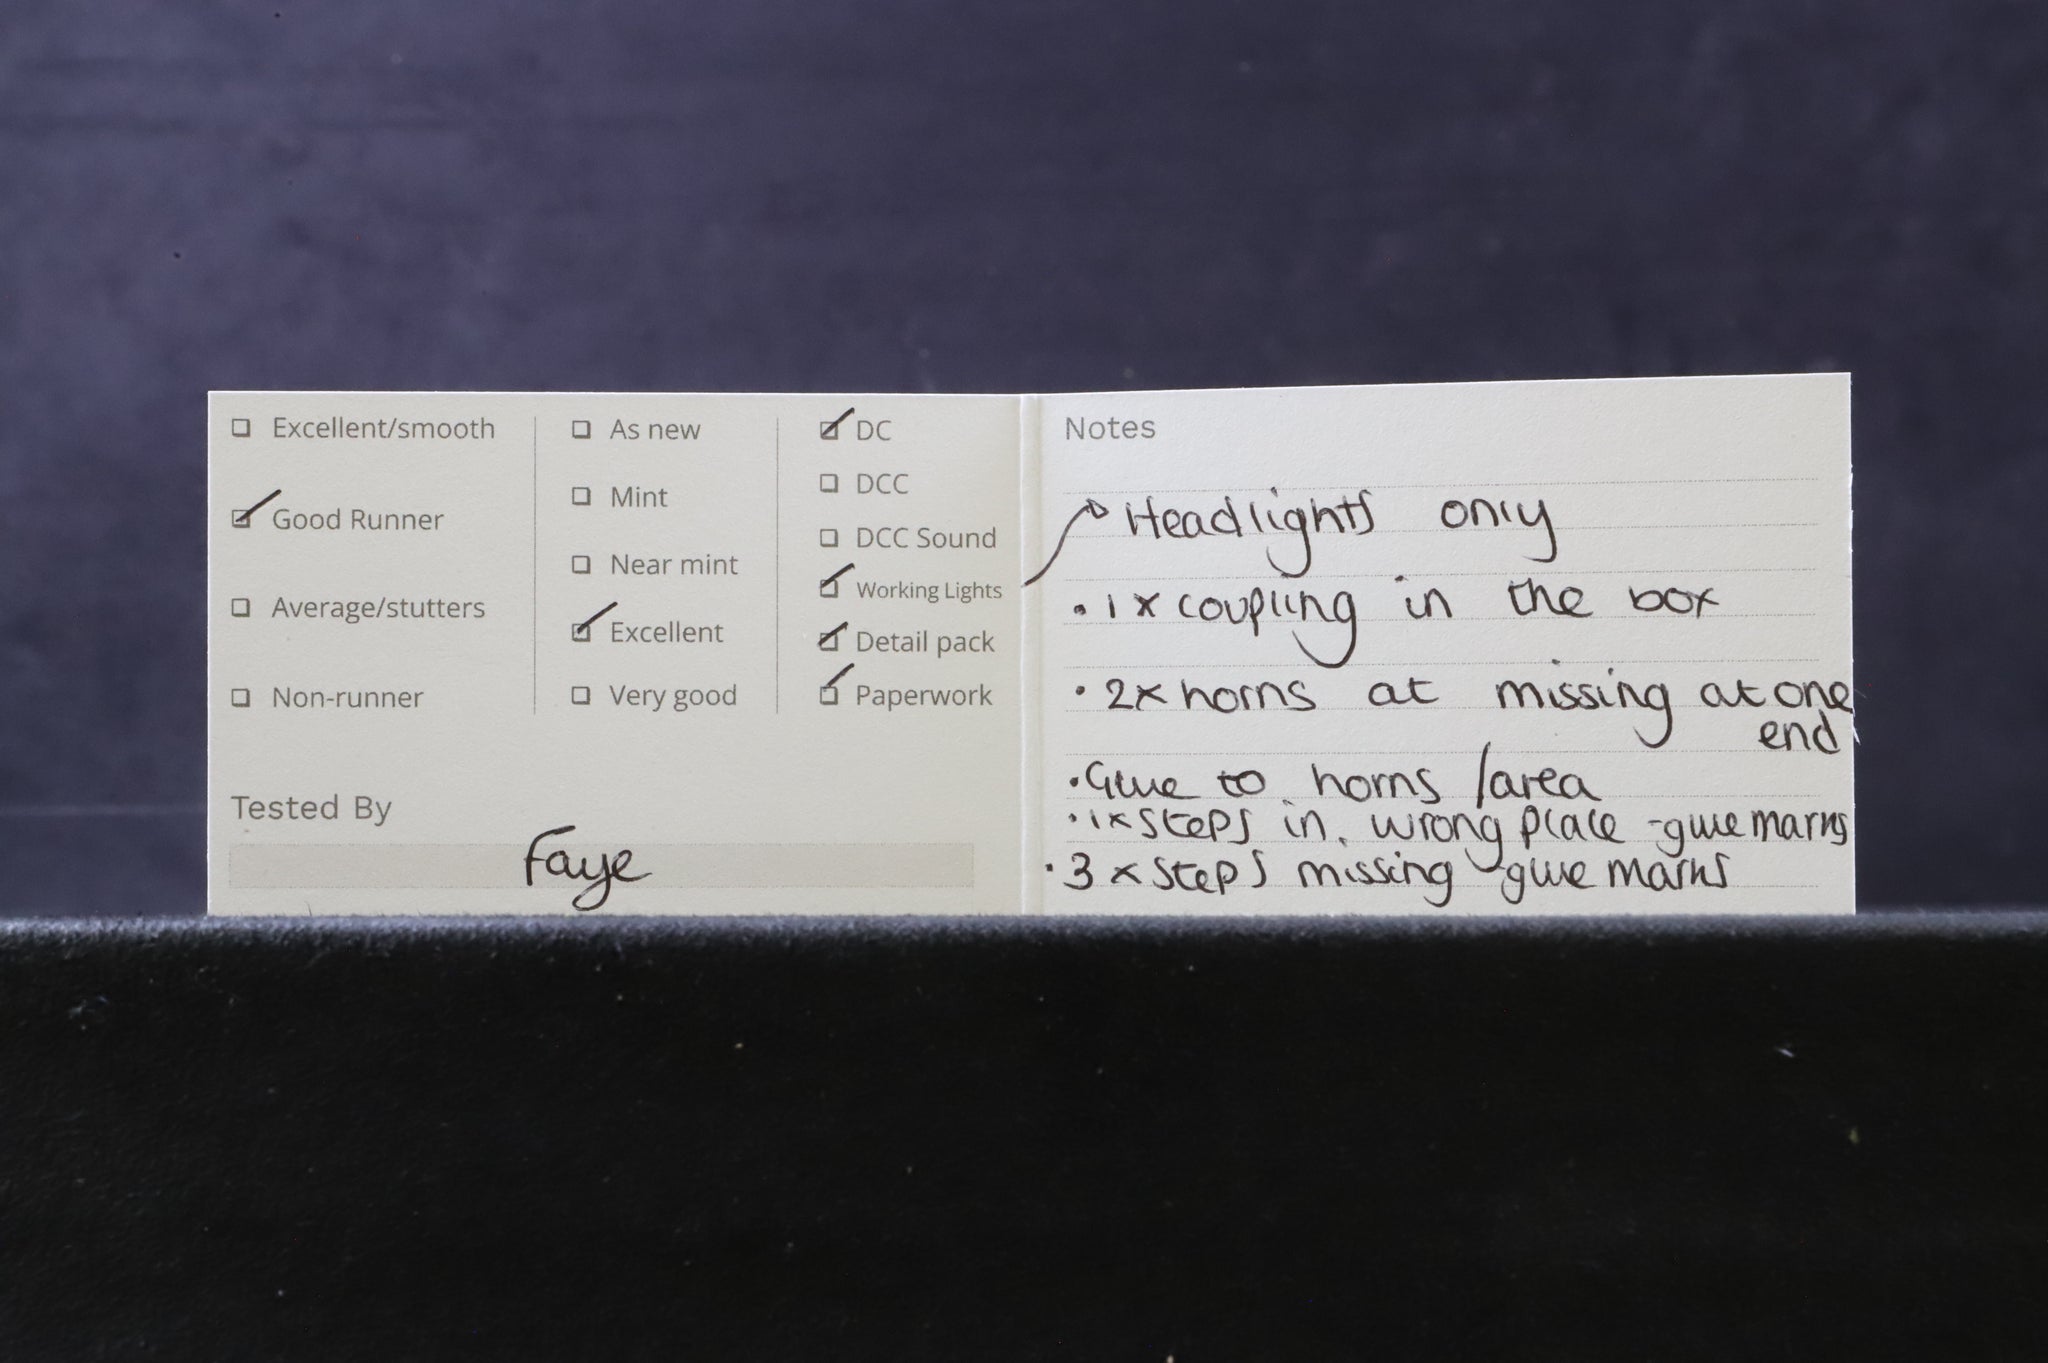 ☐ Excellent/smooth
☑ Good Runner
☐ Average/stutters
☐ Non-runner
☐ As new
☐ Mint
☐ Near mint
☑ Excellent
☐ Very good
☑ DC
☐ DCC
☐ DCC Sound
☑ Working Lights
☑ Detail pack
☑ Paperwork
Tested By
Faye
Notes
→ Headlights only
• 1x coupling in the box
• 2x horns at missing at one
end
• Glue to horns / area
• 1x steps in. wrong place - glue marks
• 3 x steps missing - glue marks